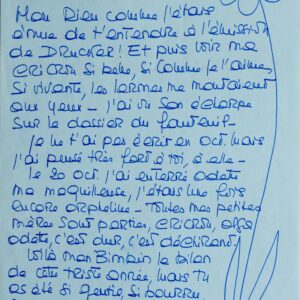 Mon Dieu comme j'étais
émue de t'entendre à l'émission
de DRUCKER! Et puis voir ma
CRICRON si belle, si comme je l'aimais,
si vivante, les larmes me montaient
aux yeux - j'ai vu son écharpe
sur le dossier du fauteuil -
Je ne t'ai pas écrit en oct. mais
j'ai pensé très fort à toi, à elle -
le 20 oct. j'ai enterré odette
ma maquilleuse, j'étais une fois
encore orpheline - Toutes mes petites
mères sont parties, CRICRON,
odette, c'est dur, c'est déchirant.
Voilà mon Bimbin le bilan
de cette triste année, mais tu
as été si gentil, si bourru